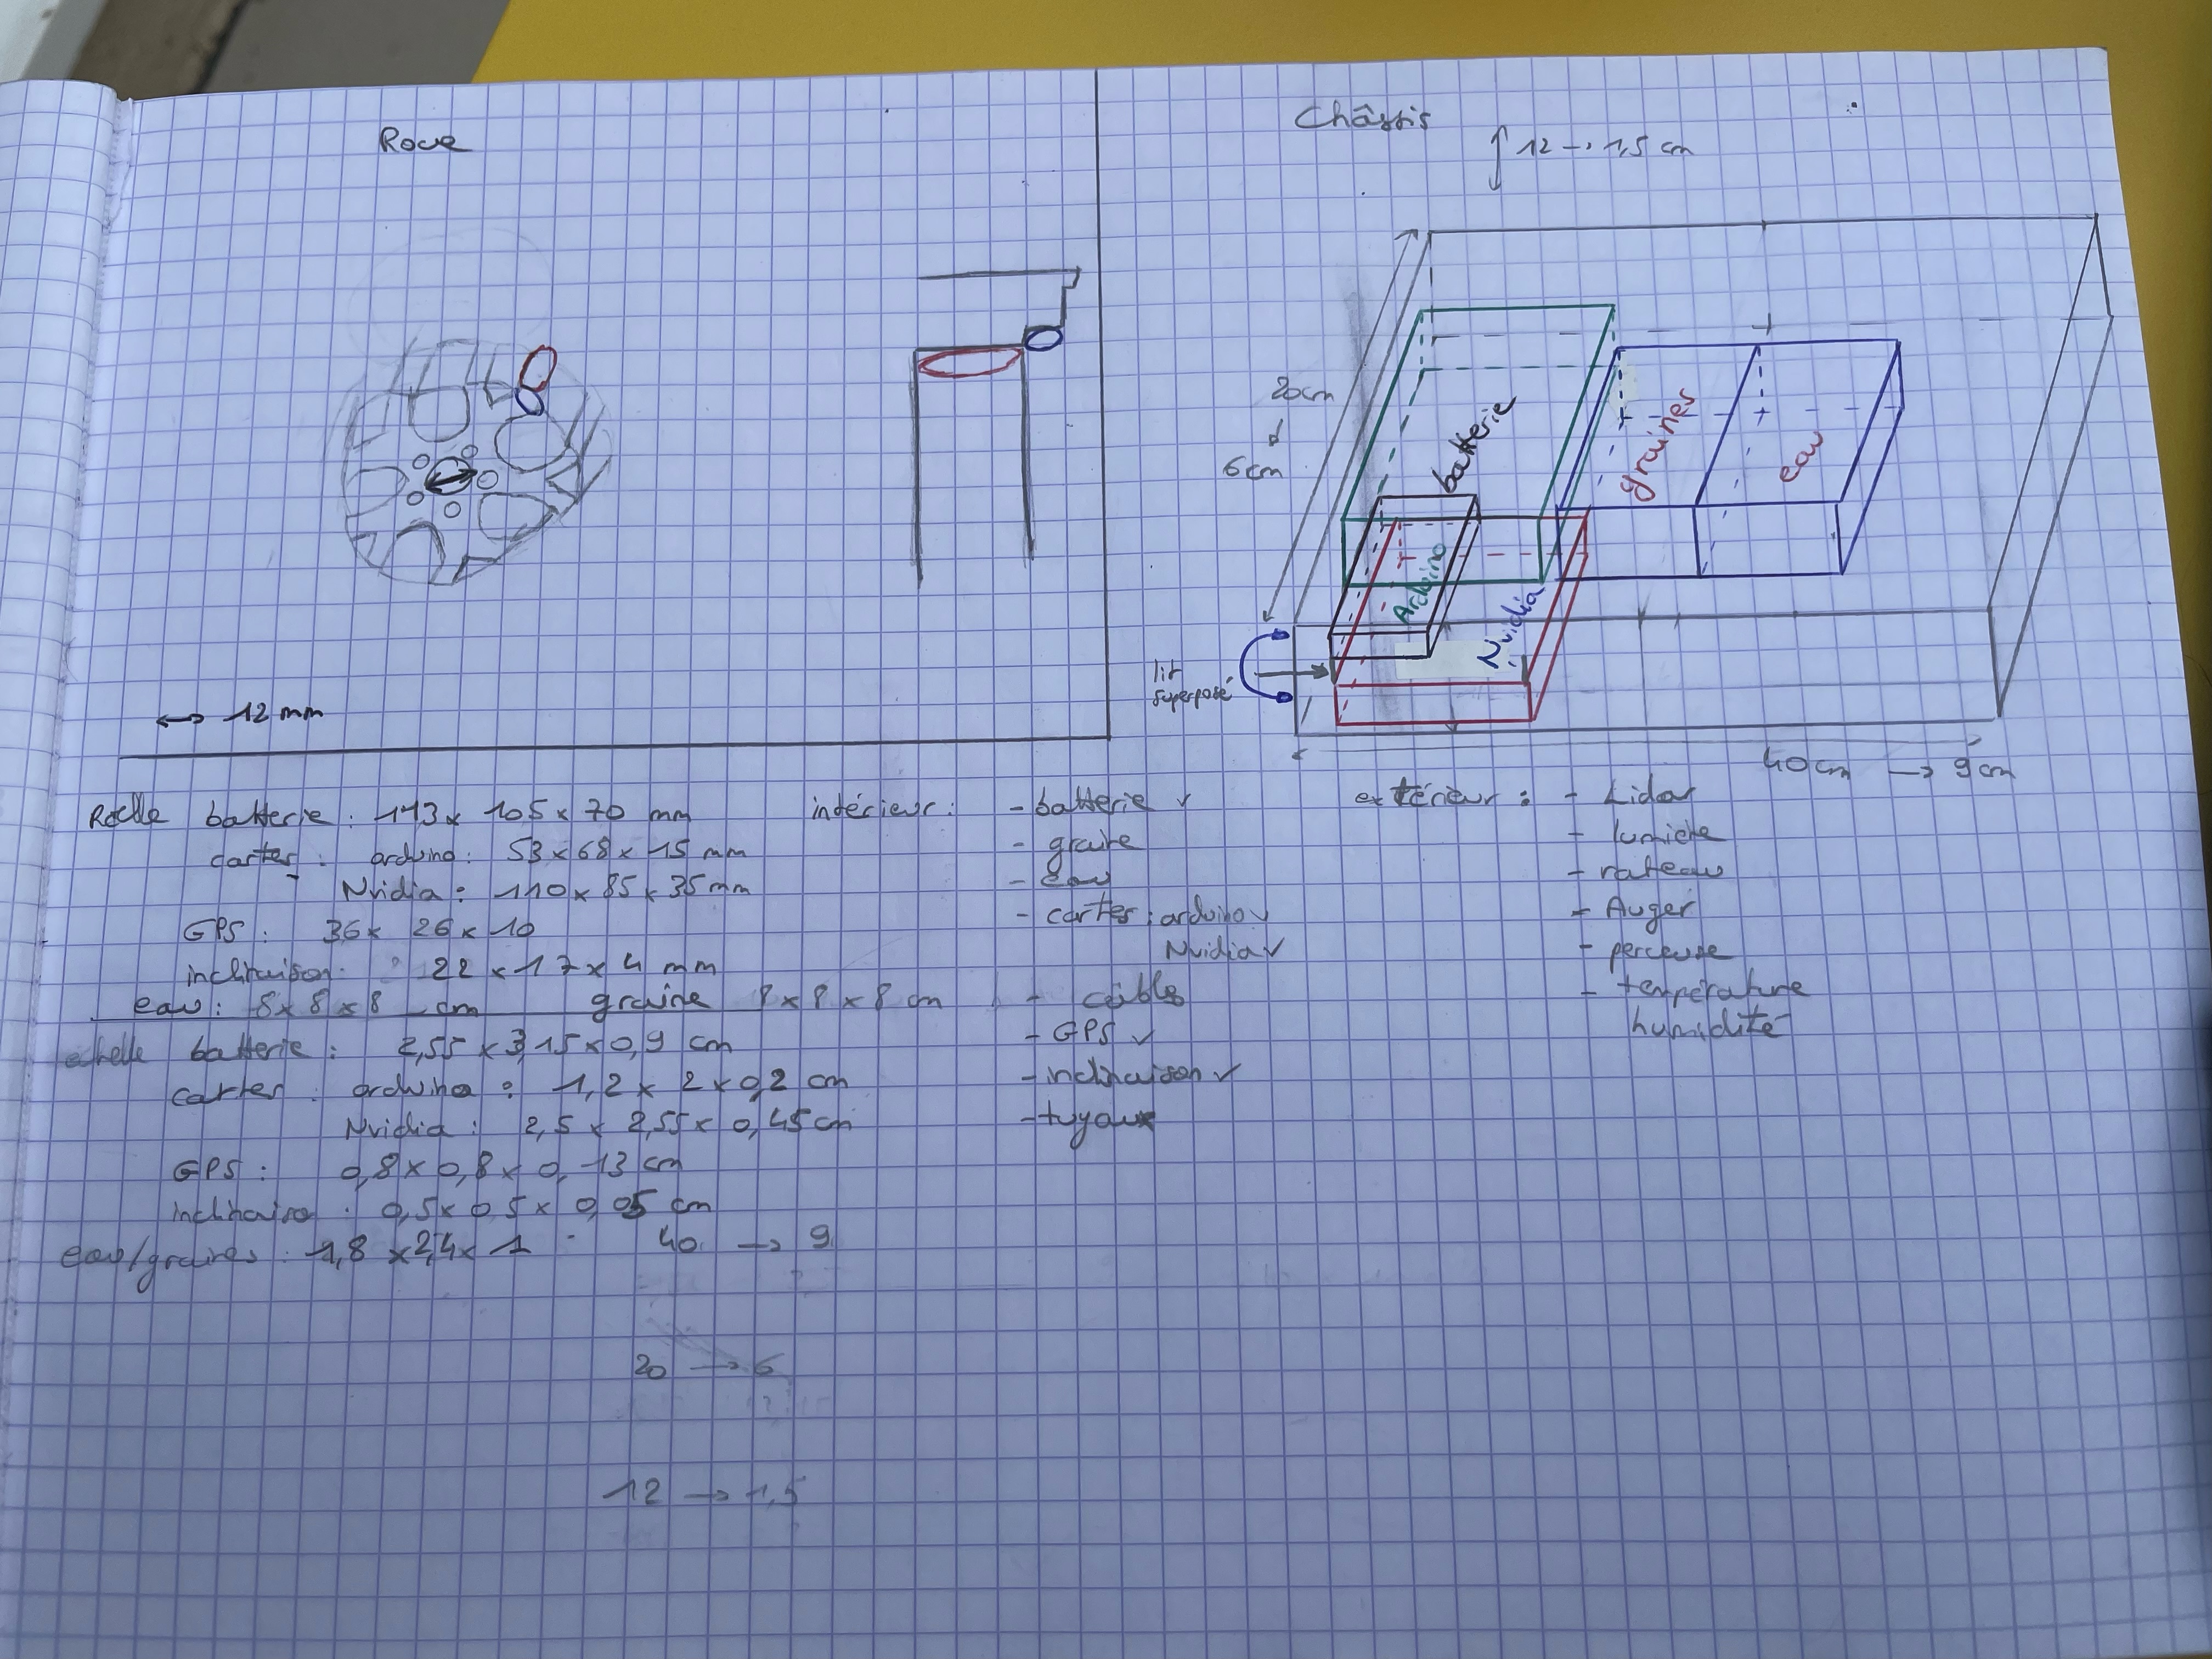 Roue
↔ 12 mm
Châssis
↕ 12 → 1,5 cm
20cm
↓
6cm
lit
superposé
batterie
Arduino
Nvidia
graines
eau
40cm → 9cm
Réelle batterie : 113 x 105 x 70 mm
cartes : arduino : 53 x 68 x 15 mm
Nvidia : 110 x 85 x 35 mm
GPS : 36 x 26 x 10
inclinaison : 22 x 17 x 4 mm
eau : 8 x 8 x 8 cm graine 8 x 8 x 8 cm
échelle batterie : 2,55 x 3,15 x 0,9 cm
cartes : arduino : 1,2 x 2 x 0,2 cm
Nvidia : 2,5 x 2,55 x 0,45 cm
GPS : 0,8 x 0,8 x 0,13 cm
inclinaison : 0,5 x 0,5 x 0,05 cm
eau/graines : 1,8 x 2,4 x 1
40 → 9
20 → 6
12 → 1,5
intérieur : - batterie ✓
- graine
- eau
- cartes : arduino ✓
Nvidia ✓
- cables
- GPS ✓
- inclinaison ✓
- tuyaux
extérieur : - Lidar
- lumière
- rateau
- Auger
- perceuse
- température
humidité